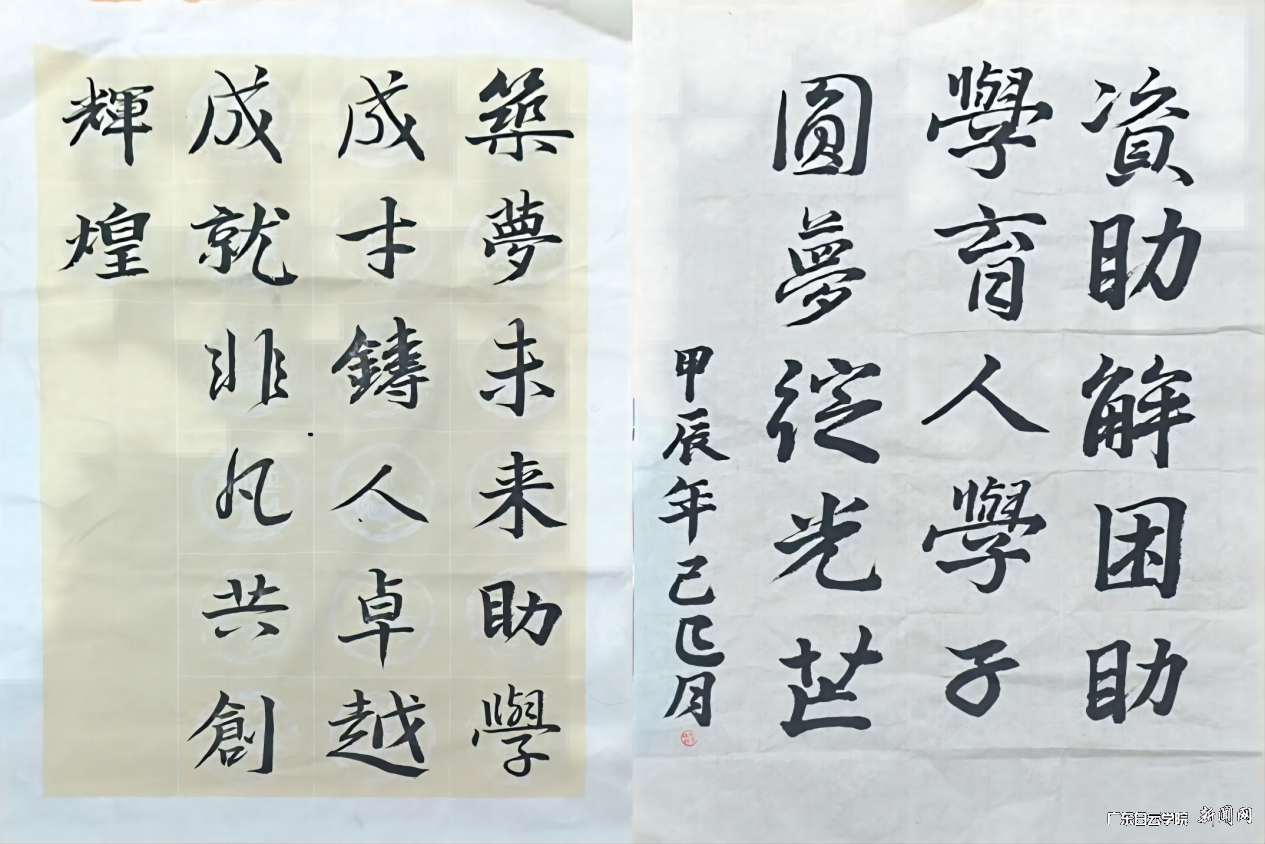 築夢未来助學
成才鑄人卓越
成就非凡共創
輝煌
資助解困助
學育人學子
圓夢绽光芒
甲辰年己巳月
广东白云学院 新闻网